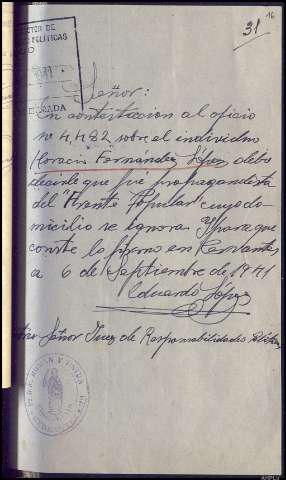 16
31
POLÍTICAS
Señor:
En contestacion al oficio
nº 4,482 sobre el individuo
Horacio Fernández López debo
decirle que fué propagandista
del Frente Popular cuyo do-
micilio se ignora. Y para que
conste lo firmo en Cervantes
a 6 de Septiembre de 1941
Eduardo López
Señor Juez de Responsabilidades Politicas